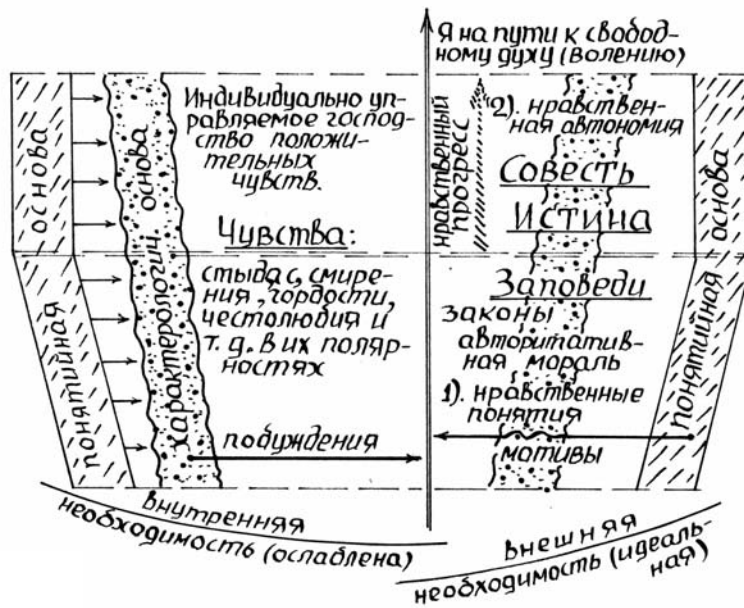 Я на пути к свобод-
ному духу (волению)
основа
понятийная
характерологич. основа
Индивидуально уп-
равляемое господ-
ство положи-
тельных
чувств.
Чувства:
стыда с, смире-
ния, гордости,
честолюбия и
т. д. в их поляр-
ностях
побуждения
нравственный
прогресс
2). нравствен-
ная автономия
Совесть
Истина
Заповеди
законы
авторитатив-
ная мораль
1). нравственные
понятия
мотивы
основа
понятийная
внутренняя
необходимость (ослаблена)
внешняя
необходимость (идеаль-
ная)